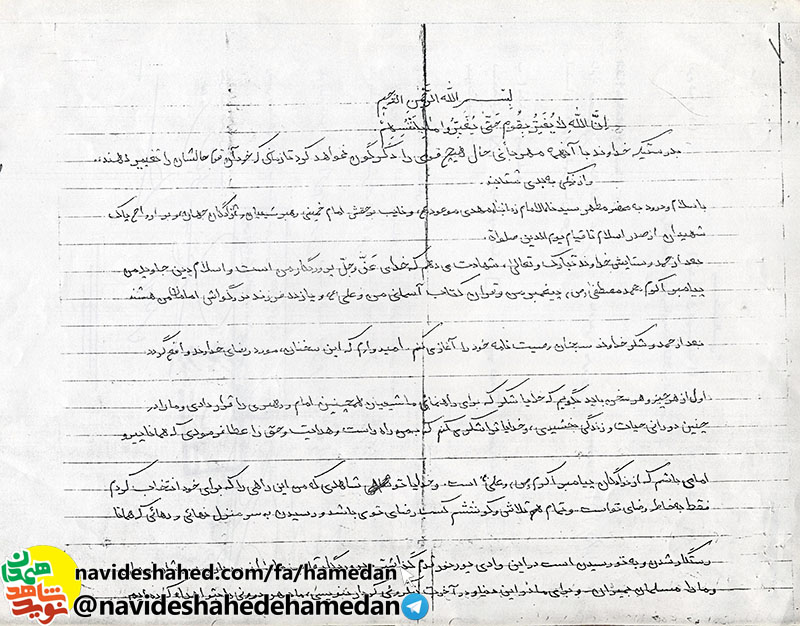 ۱
بسم الله الرحمن الرحیم
اِنَّ اللهَ لا یُغَیِّرُ بِقَومٍ حَتّی یُغَیِّروا ما بِاَنفُسِهِم
بدرستیکه خداوند با آنهمه مهربانی حال هیچ قومی را دگرگون نخواهد کرد تا زمانی که خود آن قوم حالشان را تغییر دهند..
و از نیکی به بدی شتابند
با سلام و درود به محضر مطهر سیدنا الامام زماننا مهدی موعود عج، و نایب برحقش امام خمینی رهبر شیعیان و جهان، و بر ارواح پاک
شهیدان از صدر اسلام تا قیام یوم الدین صلواة.
بعد از حمد و ستایش خداوند تبارک و تعالی، شهادت می‌دهم که خدای عَزّ و جلّ پروردگار من است و اسلام دین جاوید من
پیامبر اکرم، محمد مصطفی ص، پیغمبر من و قرآن کتاب آسمانی من و علی ع، و یازده فرزند بزرگوارش امامان من هستند
بعد از حمد و شکر خداوند سبحان وصیت نامه خود را آغاز می‌کنم. امیدوارم که این سخنان، مورد رضای خداوند واقع گردد
اول از هر چیز و هر سخن باید بگویم که خدایا شکر که برای راهنمای ما شیعیان همچنین امام و رهبری را قرار دادی و ما را در
چنین دورانی حیات و زندگی بخشیدی، و خدایا ترا شکر می‌کنم که بمن راه راست و هدایت و حق را عطا فرمودی که همانا پیرو
امامی باشم که از نوادگان پیامبر اکرم ص، و علی ع است. و خدایا تو شاهدی که من این راهی را که برای خود انتخاب کردم
فقط به خاطر رضای تو است. و تمام تلاش و کوششم کسب رضای توی باشد و رسیدن به سر منزل نهائی و رهائی که همانا
رستگار شدن و به تو رسیدن است در این وادی
و ما ملت مسلمان
navideshahed.com/fa/hamedan
@navideshahedehamedan
نوید شاهد همدان